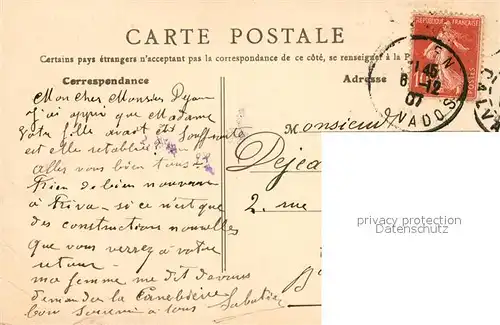 CARTE POSTALE
Certains pays étrangers n'acceptant pas la correspondance de ce côté, se renseigner à la P
Correspondance
Adresse
REPUBLIQUE FRANÇAISE
EN
45
6 12
07
VADOS
CALVA
Mon cher Monsieur
J'ai appris que Madame
votre fille avait été souffrante
est elle rétablie
allez vous bien tous
Rien de bien nouveau
a Riva si ce n'est que
des constructions nouvelles
que vous verrez à votre
retour
ma femme me dit d'avoir
demander la
bon souvenir à tous Sabatier
Monsieur
Dejea
2, rue
privacy protection
Datenschutz